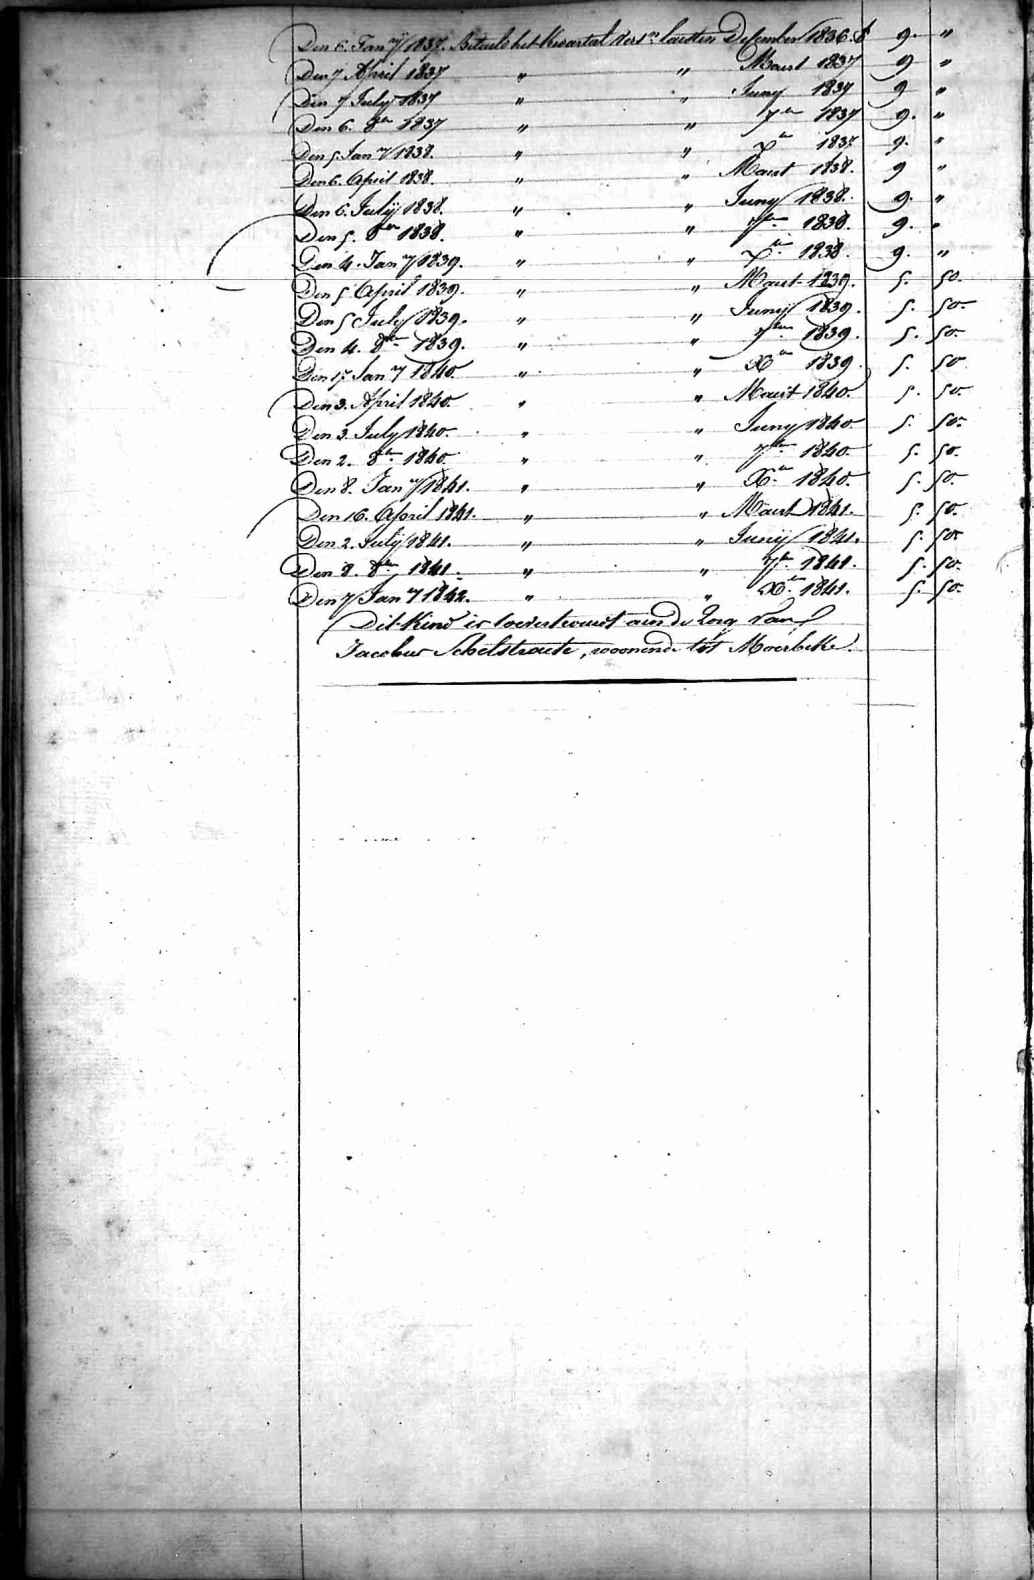 Den 6. Jan ry 1837. Betaelt het kwartal verst n laesten December 1836. f 9. "
Den 7 April 1837 " " Maert 1837 9 "
Den 7 July 1837 " " Juny 1837 9 "
Den 6. 8 ber 1837 " " 7 ber 1837 9. "
Den 5 Jan ry 1838. " " X ber 1837 9. "
Den 6. April 1838. " " Maert 1838. 9 "
Den 6. July 1838. " " Juny 1838. 9. "
Den 5. 8 ber 1838. " " 7 ber 1838. 9. "
Den 4. Jan ry 1839. " " X ber 1838. 9. "
Den 5 April 1839. " " Maert 1839. 5. 50.
Den 5 July 1839. " " Juny 1839. 5. 50.
Den 4. 8 ber 1839. " " 7 ber 1839. 5. 50.
Den 17 Jan ry 1840. " " X ber 1839 5. 50
Den 3. April 1840. " " Maert 1840. 5. 50.
Den 3. July 1840. " " Juny 1840. 5. 50.
Den 2. 8 ber 1840. " " 7 ber 1840. 5. 50.
Den 8. Jan ry 1841. " " X ber 1840. 5. 50.
Den 16. April 1841. " " Maert 1841. 5. 50.
Den 2. July 1841. " " Juny 1841. 5. 50
Den 8. 8 ber 1841. " " 7 ber 1841. 5. 50.
Den 7 Jan ry 1842. " " X ber 1841. 5. 50.
Dit kind is toevertrouwt aen de zorg van
Jacobus Schelstraete, woonende tot Moerbeke.